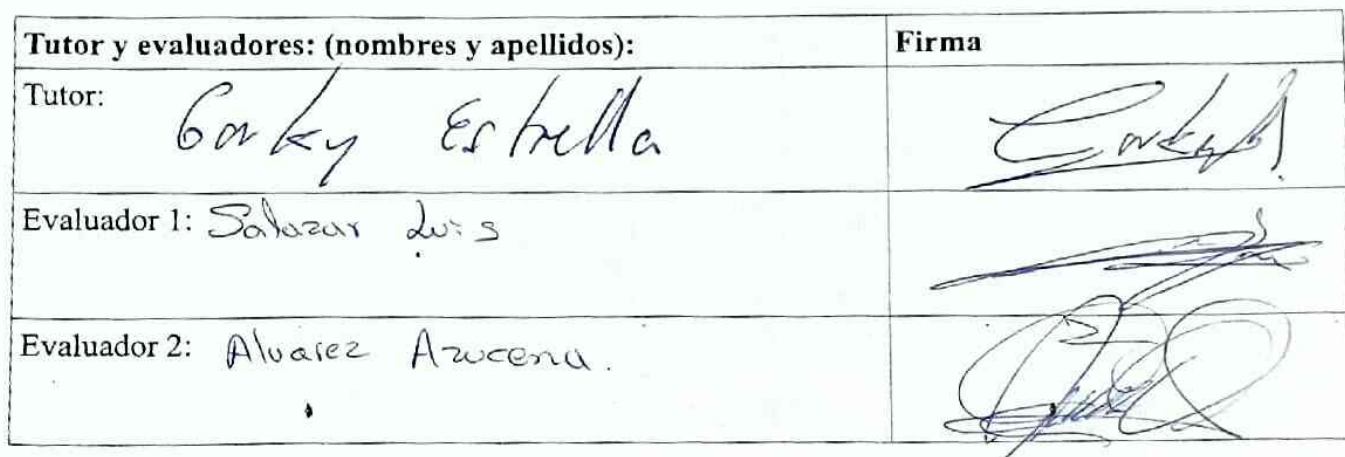 Tutor y evaluadores: (nombres y apellidos): Firma
Tutor: Gorky Estrella
Evaluador 1: Salazar Luis
Evaluador 2: Alvarez Azucena.